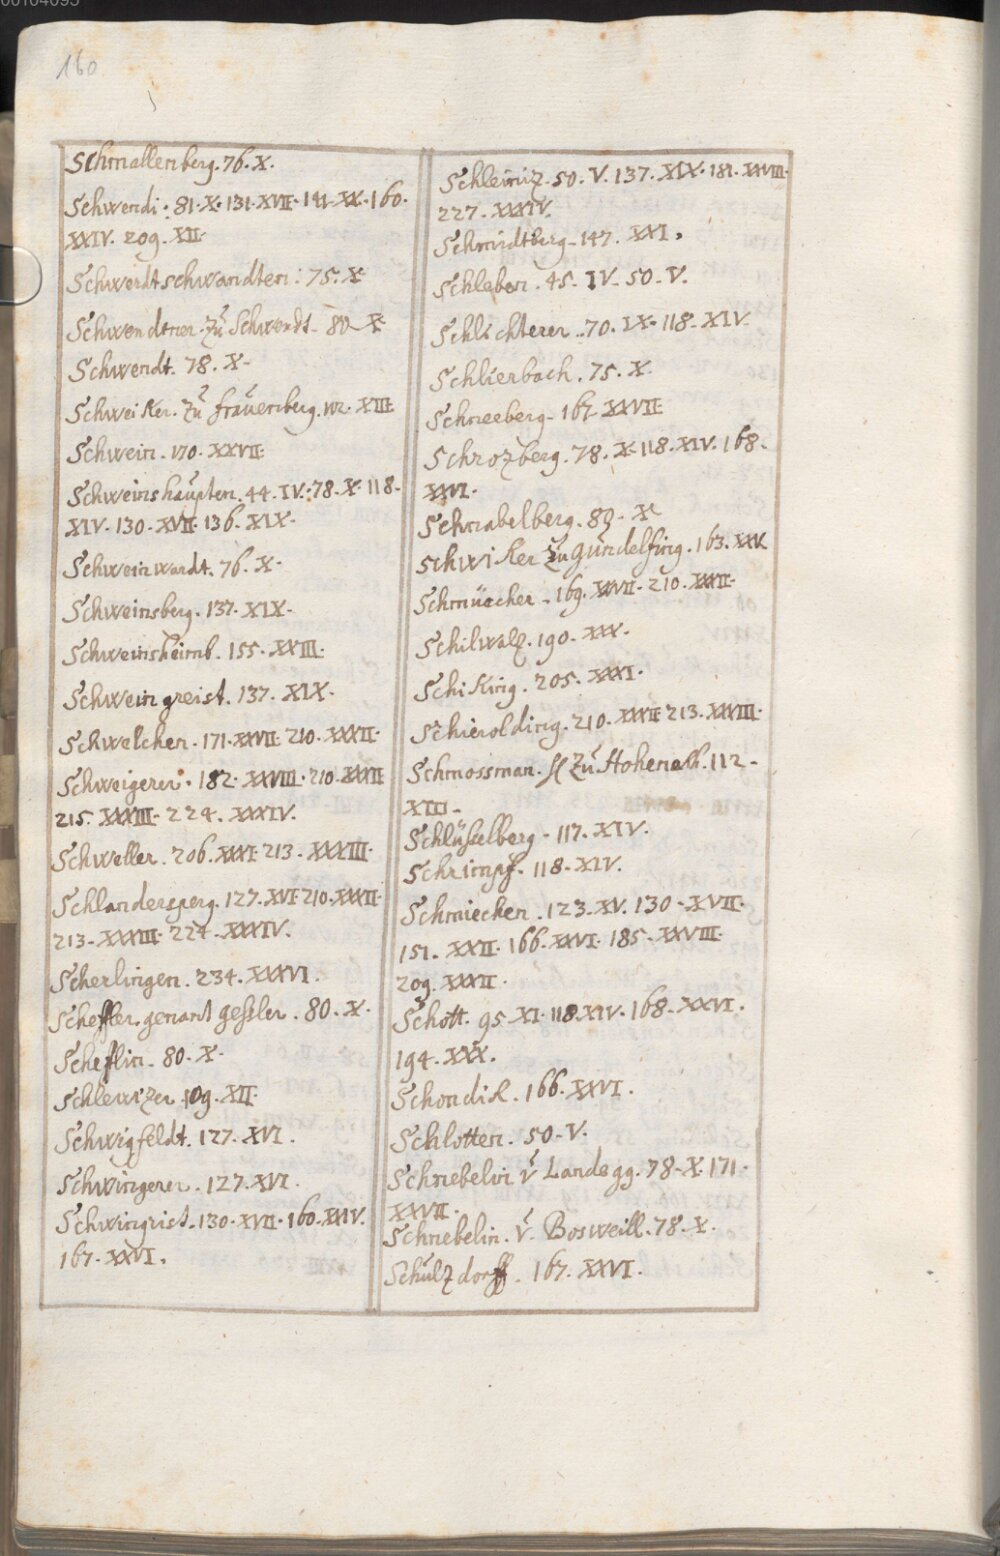 160
Schmallenberg. 76. X.
Schwendi. 81. X. 131. XVII. 141. XX. 160.
XXIV. 209. XII.
Schwerdtschwandten. 75. X
Schwendtner. Zŭ Schwendt. 80. X
Schwendt. 78. X.
Schweiker. Zŭ fraŭenberg. XIII
Schwein. 170. XXVII.
Schweinshaŭpten. 44. IV. 78. X. 118.
XIV. 130. XVII. 136. XIX.
Schweinwardt. 76. X.
Schweinsberg. 137. XIX.
Schweinsheimb. 155. XXIII.
Schweingreist. 137. XIX.
Schwelcher. 171. XXVII. 210. XXXII.
Schweigerer. 182. XXVIII. 210. XXXII
215. XXXIII. 224. XXXIV.
Schweller. 206. XXXI. 213. XXXIII.
Schlandersperg. 127. XVI. 210. XXXII.
213. XXXIII. 224. XXXIV.
Scherlingen. 234. XXXVI.
Scheffler. genant geßler. 80. X.
Scheflin. 80. X.
Schlewizer. 109. XII.
Schwigfeldt. 127. XVI.
Schwingerer. 127. XVI.
Schwingrist. 130. XVII. 160. XXIV.
167. XXVI.
Schleiniz. 50. V. 137. XIX. 181. XXVIII.
227. XXXIV.
Schmidtberg. 147. XXI.
Schleben. 45. IV. 50. V.
Schlichterer. 70. IX. 118. XIV.
Schlierbach. 75. X.
Schneeberg. 167. XXVII
Schrozberg. 78. X. 118. XIV. 168.
XXVI.
Schnabelberg. 89. X
Schwiker Zu Gŭndelfing. 163. XXV
Schmŭcher. 169. XXVII. 210. XXXII.
Schilwaz. 190. XXX.
Schiking. 205. XXXI.
Schierolding. 210. XXXII. 213. XXXIII.
Schmossman. Zŭ Hohenalb. 112.
XIII.
Schlüsselberg. 117. XIV.
Schrimpf. 118. XIV.
Schmiechen. 123. XV. 130. XVII.
151. XXII. 166. XXVI. 185. XXVIII.
209. XXXII.
Schott. 95. XI. 118. XIV. 168. XXVI.
194. XXX.
Schondik. 166. XXVI.
Schlotten. 50. V.
Schnebelin v̆ Landegg. 78. X. 171.
XXVII.
Schnebelin. v̆. Bosweill. 78. X.
Schŭlzdorff. 167. XXVI.